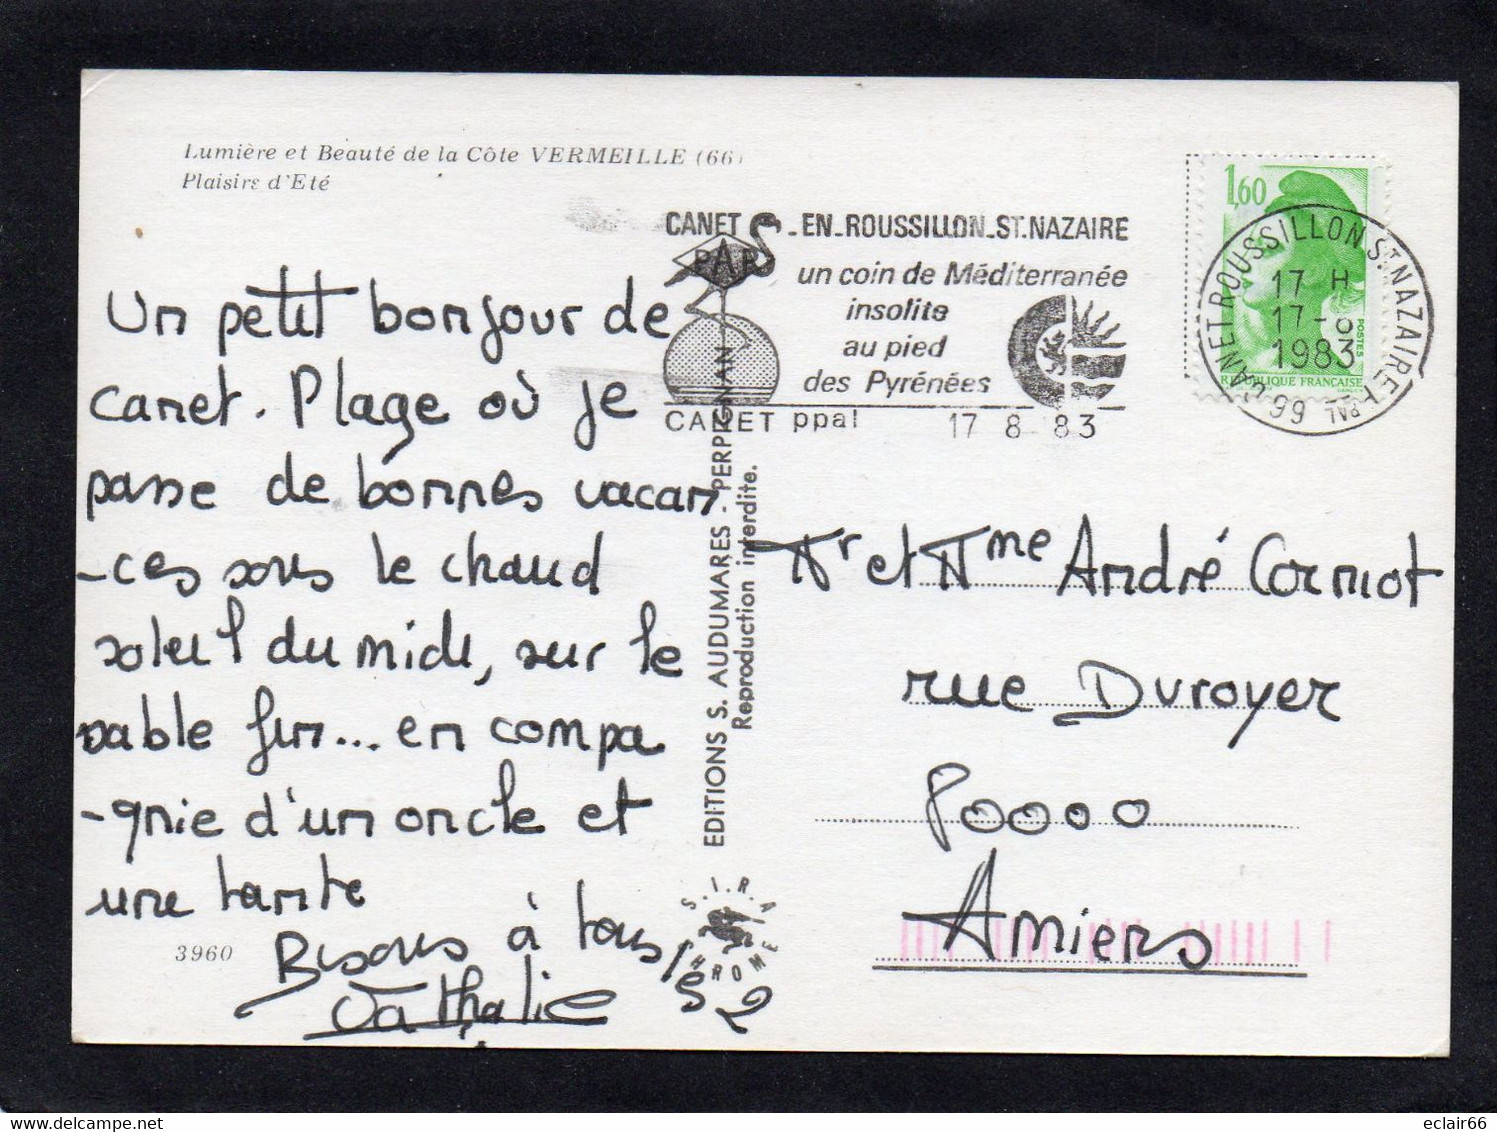 Lumière et Beauté de la Côte VERMEILLE (66)
Plaisirs d'Eté
CANET EN ROUSSILLON ST. NAZAIRE
un coin de Méditerranée
insolite
au pied
des Pyrénées
CANET ppal 17 8 83
1,60
POSTES
REPUBLIQUE FRANÇAISE
CANET ROUSSILLON ST NAZAIRE PAL 66
17 H
17-8
1983
Un petit bonjour de
Canet. Plage où je
passe de bonnes vacan
-ces sous le chaud
soleil du midi, sur le
sable fin... en compa
-gnie d'un oncle et
une tante
Bisous à tous
Nathalie
3960
PAP
EDITIONS S. AUDUMARES - PERPIGNAN
Reproduction interdite.
S.I.R.A
CHROME
Mr et Mme André Cormot
rue Duroyer
80000
Amiens
eclair66